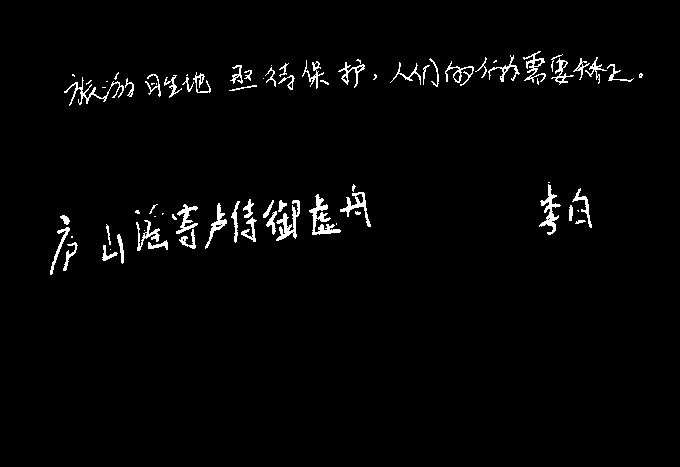 旅游胜地亟待保护，人们的行为需要矫正。
庐山谣寄卢侍御虚舟 李白